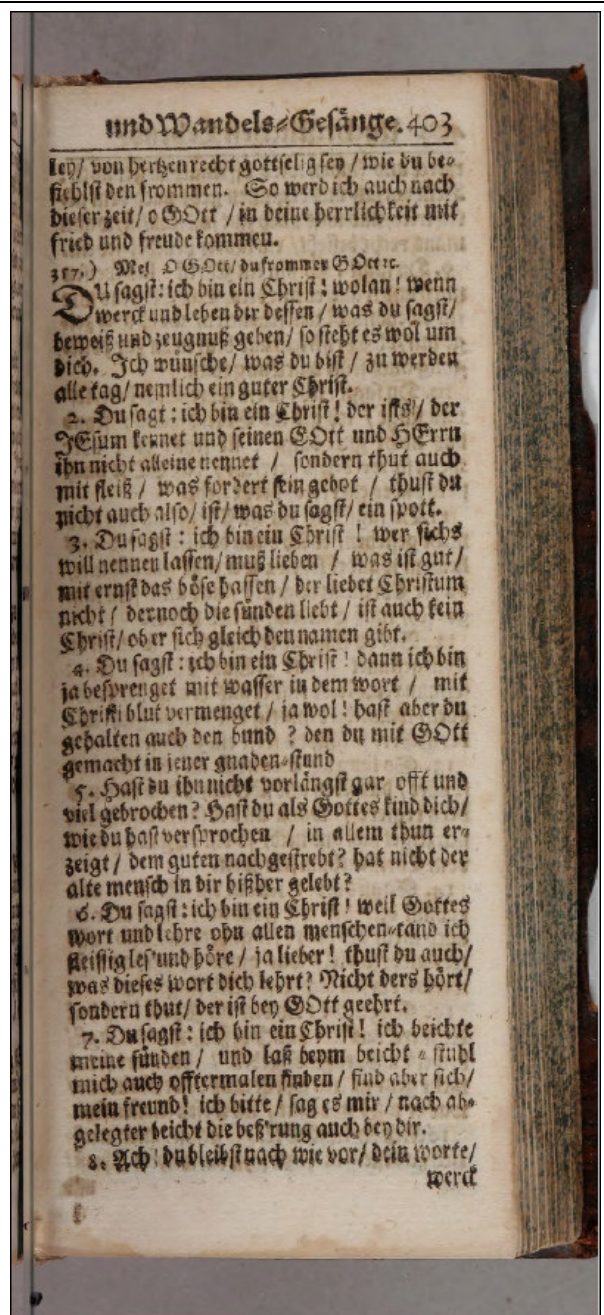 und Wandels-Gesänge. 403
ley/ von hertzen recht gottselig sey / wie du be-
fiehlst den frommen. So werd ich auch nach
dieser zeit/ o GOtt / in deine herrlichkeit mit
fried und freude kommen.
317.) Mel. O GOtt/ du frommer GOtt ꝛc.
DU sagst: ich bin ein Christ! wolan! wenn
werck und leben dir dessen / was du sagst/
beweiß und zeugnuß geben/ so steht es wol um
dich. Ich wünsche/ was du bist / zu werden
alle tag/ nemlich ein guter Christ.
2. Du sagt: ich bin ein Christ! der ists/ der
JEsum kennet und seinen GOtt und HErrn
ihn nicht alleine nennet / sondern thut auch
mit fleiß / was fordert sein gebot / thust du
nicht auch also/ ist/ was du sagst/ ein spott.
3. Du sagst: ich bin ein Christ ! wer sichs
will nennen lassen/ muß lieben / was ist gut/
mit ernst das böse hassen / der liebet Christum
nicht / der noch die sünden liebt / ist auch kein
Christ/ ob er sich gleich den namen gibt.
4. Du sagst: ich bin ein Christ! dann ich bin
ja besprenget mit wasser in dem wort / mit
Christi blut vermenget / ja wol! hast aber du
gehalten auch den bund ? den du mit GOtt
gemacht in jener gnaden-stund
5. Hast du ihn nicht vorlängst gar offt und
viel gebrochen? Hast du als Gottes kind dich/
wie du hast versprochen / in allem thun er-
zeigt / dem guten nachgestrebt? hat nicht der
alte mensch in dir bißher gelebt?
6. Du sagst: ich bin ein Christ! weil Gottes
wort und lehre ohn allen menschen-tand ich
fleissig les' und höre / ja lieber! thust du auch/
was dieses wort dich lehrt? Nicht ders hört/
sondern thut/ der ist bey GOtt geehrt.
7. Du sagst: ich bin ein Christ! ich beichte
meine sünden / und laß beym beicht-stuhl
mich auch offtermalen finden / find aber sich/
mein freund! ich bitte / sag es mir / nach ab-
gelegter beicht die beß'rung auch bey dir.
8. Ach! du bleibst nach wie vor/ dein worte/
werck